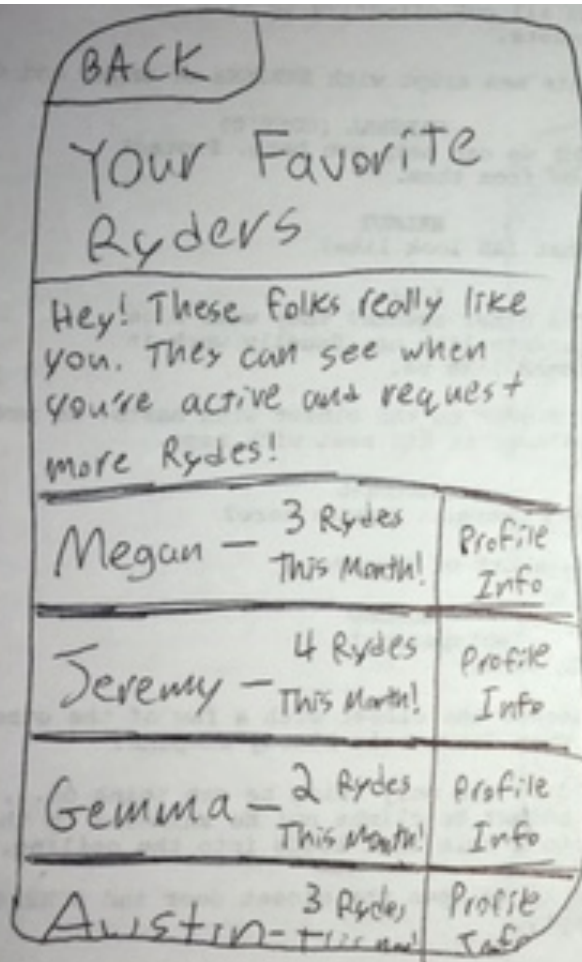 BACK
Your Favorite
Ryders
Hey! These folks really like
you. They can see when
you're active and request
more Rydes!
Megan — 3 Rydes
This Month!
Profile
Info
Jeremy — 4 Rydes
This Month!
Profile
Info
Gemma — 2 Rydes
This Month!
Profile
Info
Austin - 3 Rydes
Profile